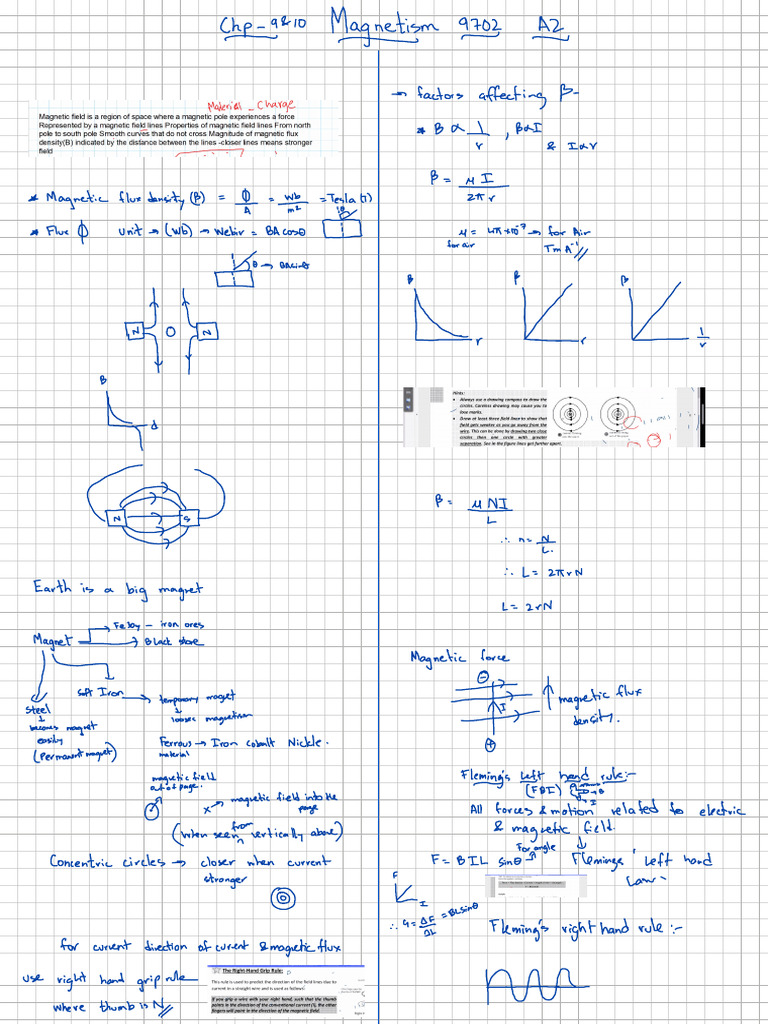 Chp - 9&10 Magnetism 9702 A2
Material - Charge
Magnetic field is a region of space where a magnetic pole experiences a force
Represented by a magnetic field lines Properties of magnetic field lines From north
pole to south pole Smooth curves that do not cross Magnitude of magnetic flux
density(B) indicated by the distance between the lines -closer lines means stronger
field
* Magnetic flux density (B) = ϕ/A = Wb/m² = Tesla (T)
* Flux ϕ unit → (Wb) → Webir = BAcosθ
θ
θ → BAsinθ
N O N
B
d
N S
Earth is a big magnet
Fe3O4 - iron ores
Magnet → Black stone
steel
becomes magnet
easily
(Permanant magnet)
soft Iron → temporary magnet
looses magnetism
Ferrous → Iron cobalt Nickle.
material
magnetic field
out of page.
x → magnetic field into the
page
(when seen from vertically above)
Concentric circles → closer when current
stronger
for current direction of current & magnetic flux
use right hand grip rule
where thumb is N
The Right-Hand Grip Rule:
This rule is used to predict the direction of the field lines due to
current in a straight wire and is used as follows:
If you grip a wire with your right hand, such that the thumb
points in the direction of the conventional current (I), the other
fingers will point in the direction of the magnetic field.
→ factors affecting B-
* B ∝ 1/r , B∝I
& I∝r
B = μI/2πr
μ = 4π×10⁻⁷ → for Air
for air TmA⁻¹
B r
B r
B 1/r
Hints:
• Always use a drawing compass to draw the
circles. Careless drawing may cause you to
lose marks.
• Draw at least three field lines to show that
field gets weaker as you go away from the
wire. This can be done by drawing two close
circles then one circle with greater
separation. See in the figure lines get further apart.
B = μNI/L
∴ n = N/L.
∴ L = 2πrN
L = 2rN
Magnetic force
−
I
+
magnetic flux
density.
Fleming's left hand rule:-
(FBI)
All forces & motion related to electric
& magnetic field.
For angle
F = BIL sinθ → Flemings' Left hand
Law
F
I
∴ G = ΔF/ΔL = BLsinθ
Fleming's right hand rule:-